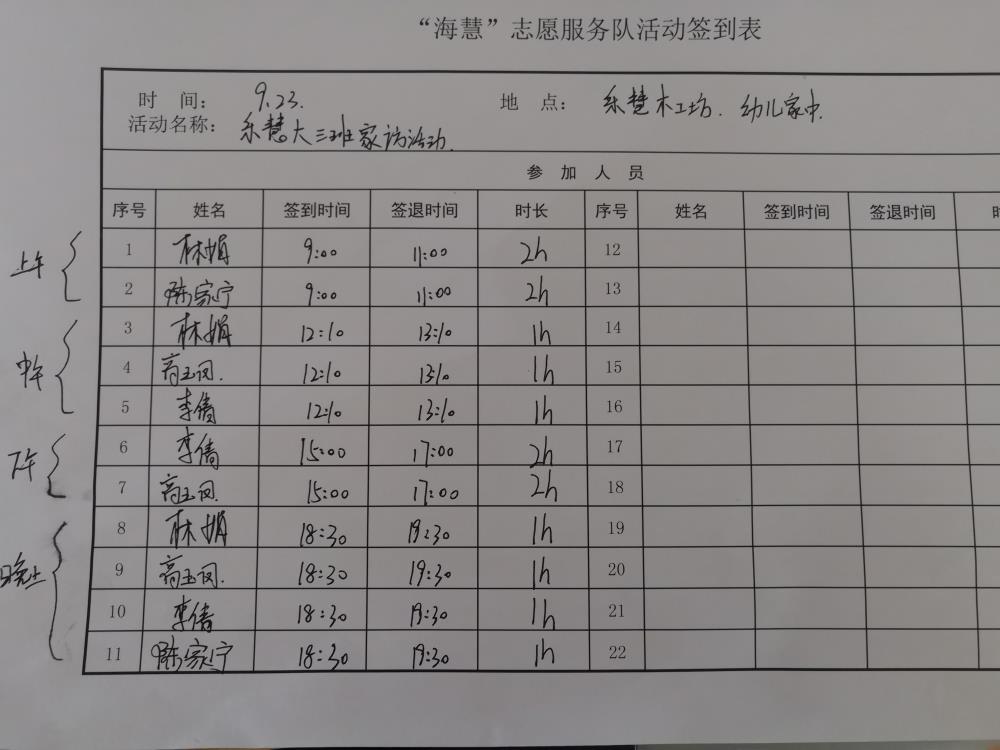 “海慧”志愿服务队活动签到表
时 间： 9.23. 地 点： 乐慧木工坊. 幼儿家中.
活动名称： 乐慧大三班家访活动.
参 加 人 员
序号 姓名 签到时间 签退时间 时长 序号 姓名 签到时间 签退时间 时
上午
1 林娟 9:00 11:00 2h 12
2 陈家宁 9:00 11:00 2h 13
中午
3 林娟 12:10 13:10 1h 14
4 高玉闵. 12:10 13:10 1h 15
5 李倩 12:10 13:10 1h 16
下午
6 李倩 15:00 17:00 2h 17
7 高玉闵. 15:00 17:00 2h 18
晚上
8 林娟 18:30 19:30 1h 19
9 高玉闵. 18:30 19:30 1h 20
10 李倩 18:30 19:30 1h 21
11 陈家宁 18:30 19:30 1h 22